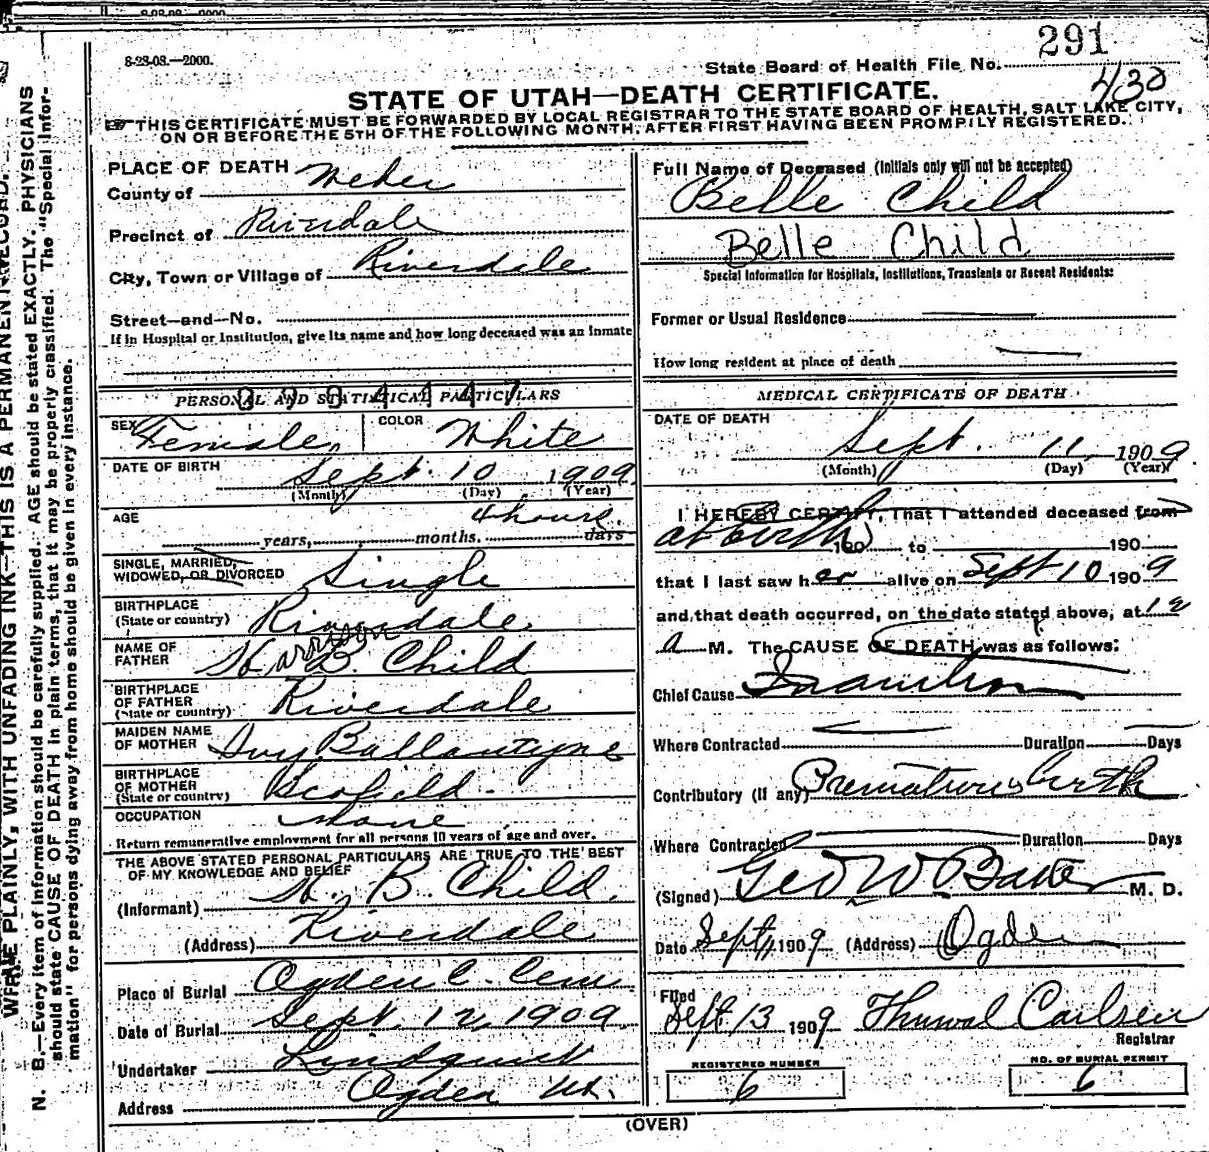 8-23-08.—2000.
291
State Board of Health File No.
430
STATE OF UTAH—DEATH CERTIFICATE.
THIS CERTIFICATE MUST BE FORWARDED BY LOCAL REGISTRAR TO THE STATE BOARD OF HEALTH, SALT LAKE CITY,
ON OR BEFORE THE 5TH OF THE FOLLOWING MONTH, AFTER FIRST HAVING BEEN PROMPTLY REGISTERED.
WRITE PLAINLY, WITH UNFADING INK—THIS IS A PERMANENT RECORD.
N. B.—Every item of information should be carefully supplied. AGE should be stated EXACTLY. PHYSICIANS
should state CAUSE OF DEATH in plain terms, that it may be properly classified. The "Special Infor-
mation" for persons dying away from home should be given in every instance.
PLACE OF DEATH
County of Weber
Precinct of Riverdale
City, Town or Village of Riverdale
Street—and—No.
If in Hospital or Institution, give its name and how long deceased was an inmate
PERSONAL AND STATISTICAL PARTICULARS
SEX Female COLOR White
DATE OF BIRTH Sept. 10 1909
(Month) (Day) (Year)
AGE 4 hours.
years, months. days
SINGLE, MARRIED,
WIDOWED, OR DIVORCED Single
BIRTHPLACE
(State or country) Riverdale
NAME OF
FATHER Harrison B. Child
BIRTHPLACE
OF FATHER
(State or country) Riverdale
MAIDEN NAME
OF MOTHER Ivy Ballantyne
BIRTHPLACE
OF MOTHER
(State or country) Scofield.
OCCUPATION None
Return remunerative employment for all persons 10 years of age and over.
THE ABOVE STATED PERSONAL PARTICULARS ARE TRUE TO THE BEST
OF MY KNOWLEDGE AND BELIEF
(Informant) H. B. Child.
(Address) Riverdale
Place of Burial Ogden C. Cem
Date of Burial Sept. 12, 1909
Undertaker Lindquist
Address Ogden Ut.
Full Name of Deceased (Initials only will not be accepted)
Belle Child
Belle Child
Special Information for Hospitals, Institutions, Transients or Recent Residents:
Former or Usual Residence
How long resident at place of death
MEDICAL CERTIFICATE OF DEATH
DATE OF DEATH
Sept. 11, 1909
(Month) (Day) (Year)
I HEREBY CERTIFY, That I attended deceased from
at birth 190 to 190
that I last saw her alive on Sept 10 1909
and that death occurred, on the date stated above, at 12
a M. The CAUSE OF DEATH was as follows:
Chief Cause Inanition
Where Contracted Duration Days
Contributory (if any) Premature birth
Where Contracted Duration Days
(Signed) Geo W Baker M. D.
Date Sept 11 1909 (Address) Ogden
Filed
Sept 13 1909 Thuwal Carlsen
Registrar
REGISTERED NUMBER
6
NO. OF BURIAL PERMIT
6
(OVER)